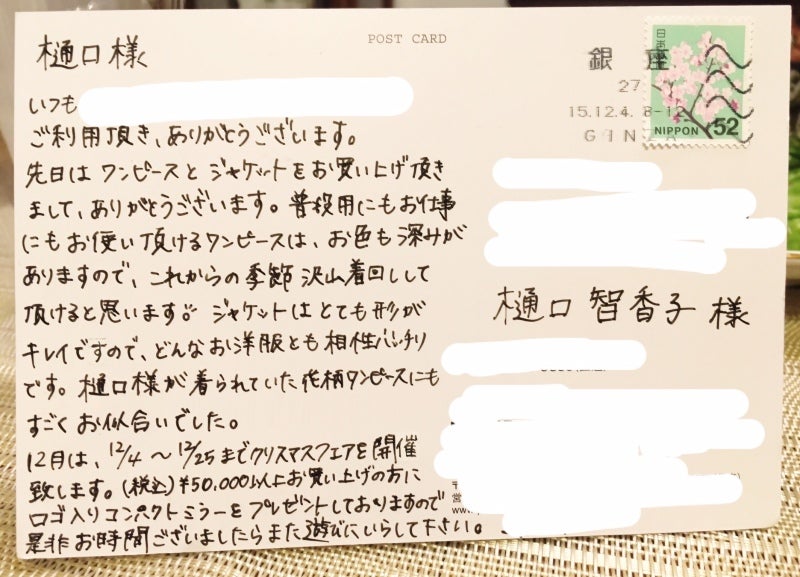 POST CARD
樋口様
いつも
ご利用頂き、ありがとうございます。
先日は ワンピースと ジャケットを お買い上げ頂き
まして、ありがとうございます。普段用にもお仕事
にもお使い頂けるワンピースは、お色も深みが
ありますので、これからの季節 沢山着回しして
頂けると思います。ジャケットはとても形が
キレイですので、どんなお洋服とも相性バッチリ
です。樋口様が着られていた花柄ワンピースにも
すごくお似合いでした。
12月は、12/4 〜 12/25 までクリスマスフェアを開催
致します。(税込)¥50,000以上お買い上げの方に
ロゴ入りコンパクトミラーをプレゼントしておりますので
是非 お時間ございましたらまた遊びにいらして下さい。
銀座
27
15.12.4. 8-12
GINZA
日本郵便
NIPPON 52
樋口 智香子 様